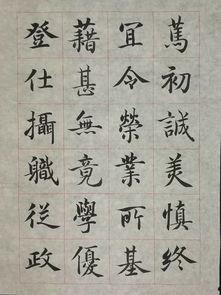 篤初誠美慎終
宜令榮業所基
藉甚無竟學優
登仕攝職從政